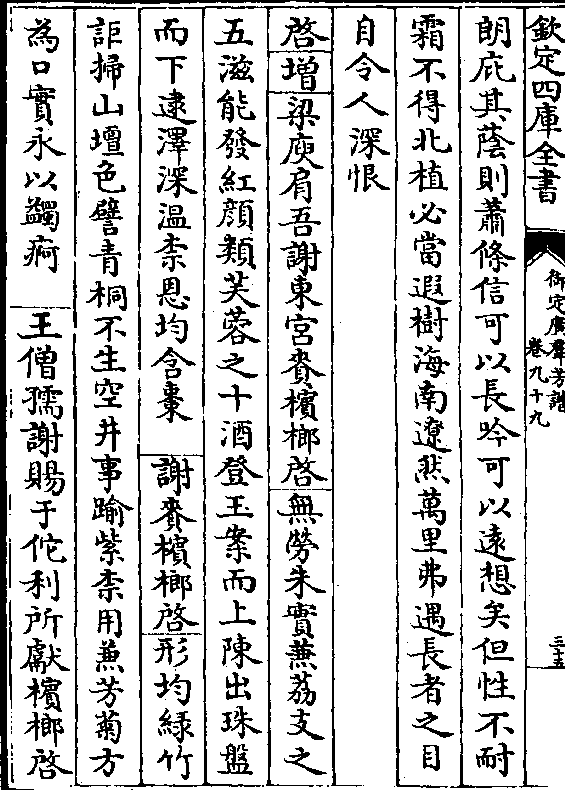 欽定四庫全書
御定廣羣芳譜
卷九十九
三十五
朗庇其蔭則蕭條信可以長吟可以遠想矣但性不耐
霜不得北植必當遐樹海南遼然萬里弗遇長者之目
自令人深恨
啓增梁庾肩吾謝東宮賚檳榔啓無勞朱實兼荔支之
五滋能發紅顔類芙蓉之十酒登玉案而上陳出珠盤
而下逮澤深温柰恩均含棗 謝賚檳榔啓形均緑竹
詎掃山壇色譬青桐不生空井事踰紫柰用兼芳菊方
為口實永以蠲痾 王僧孺謝賜于佗利所獻檳榔啓